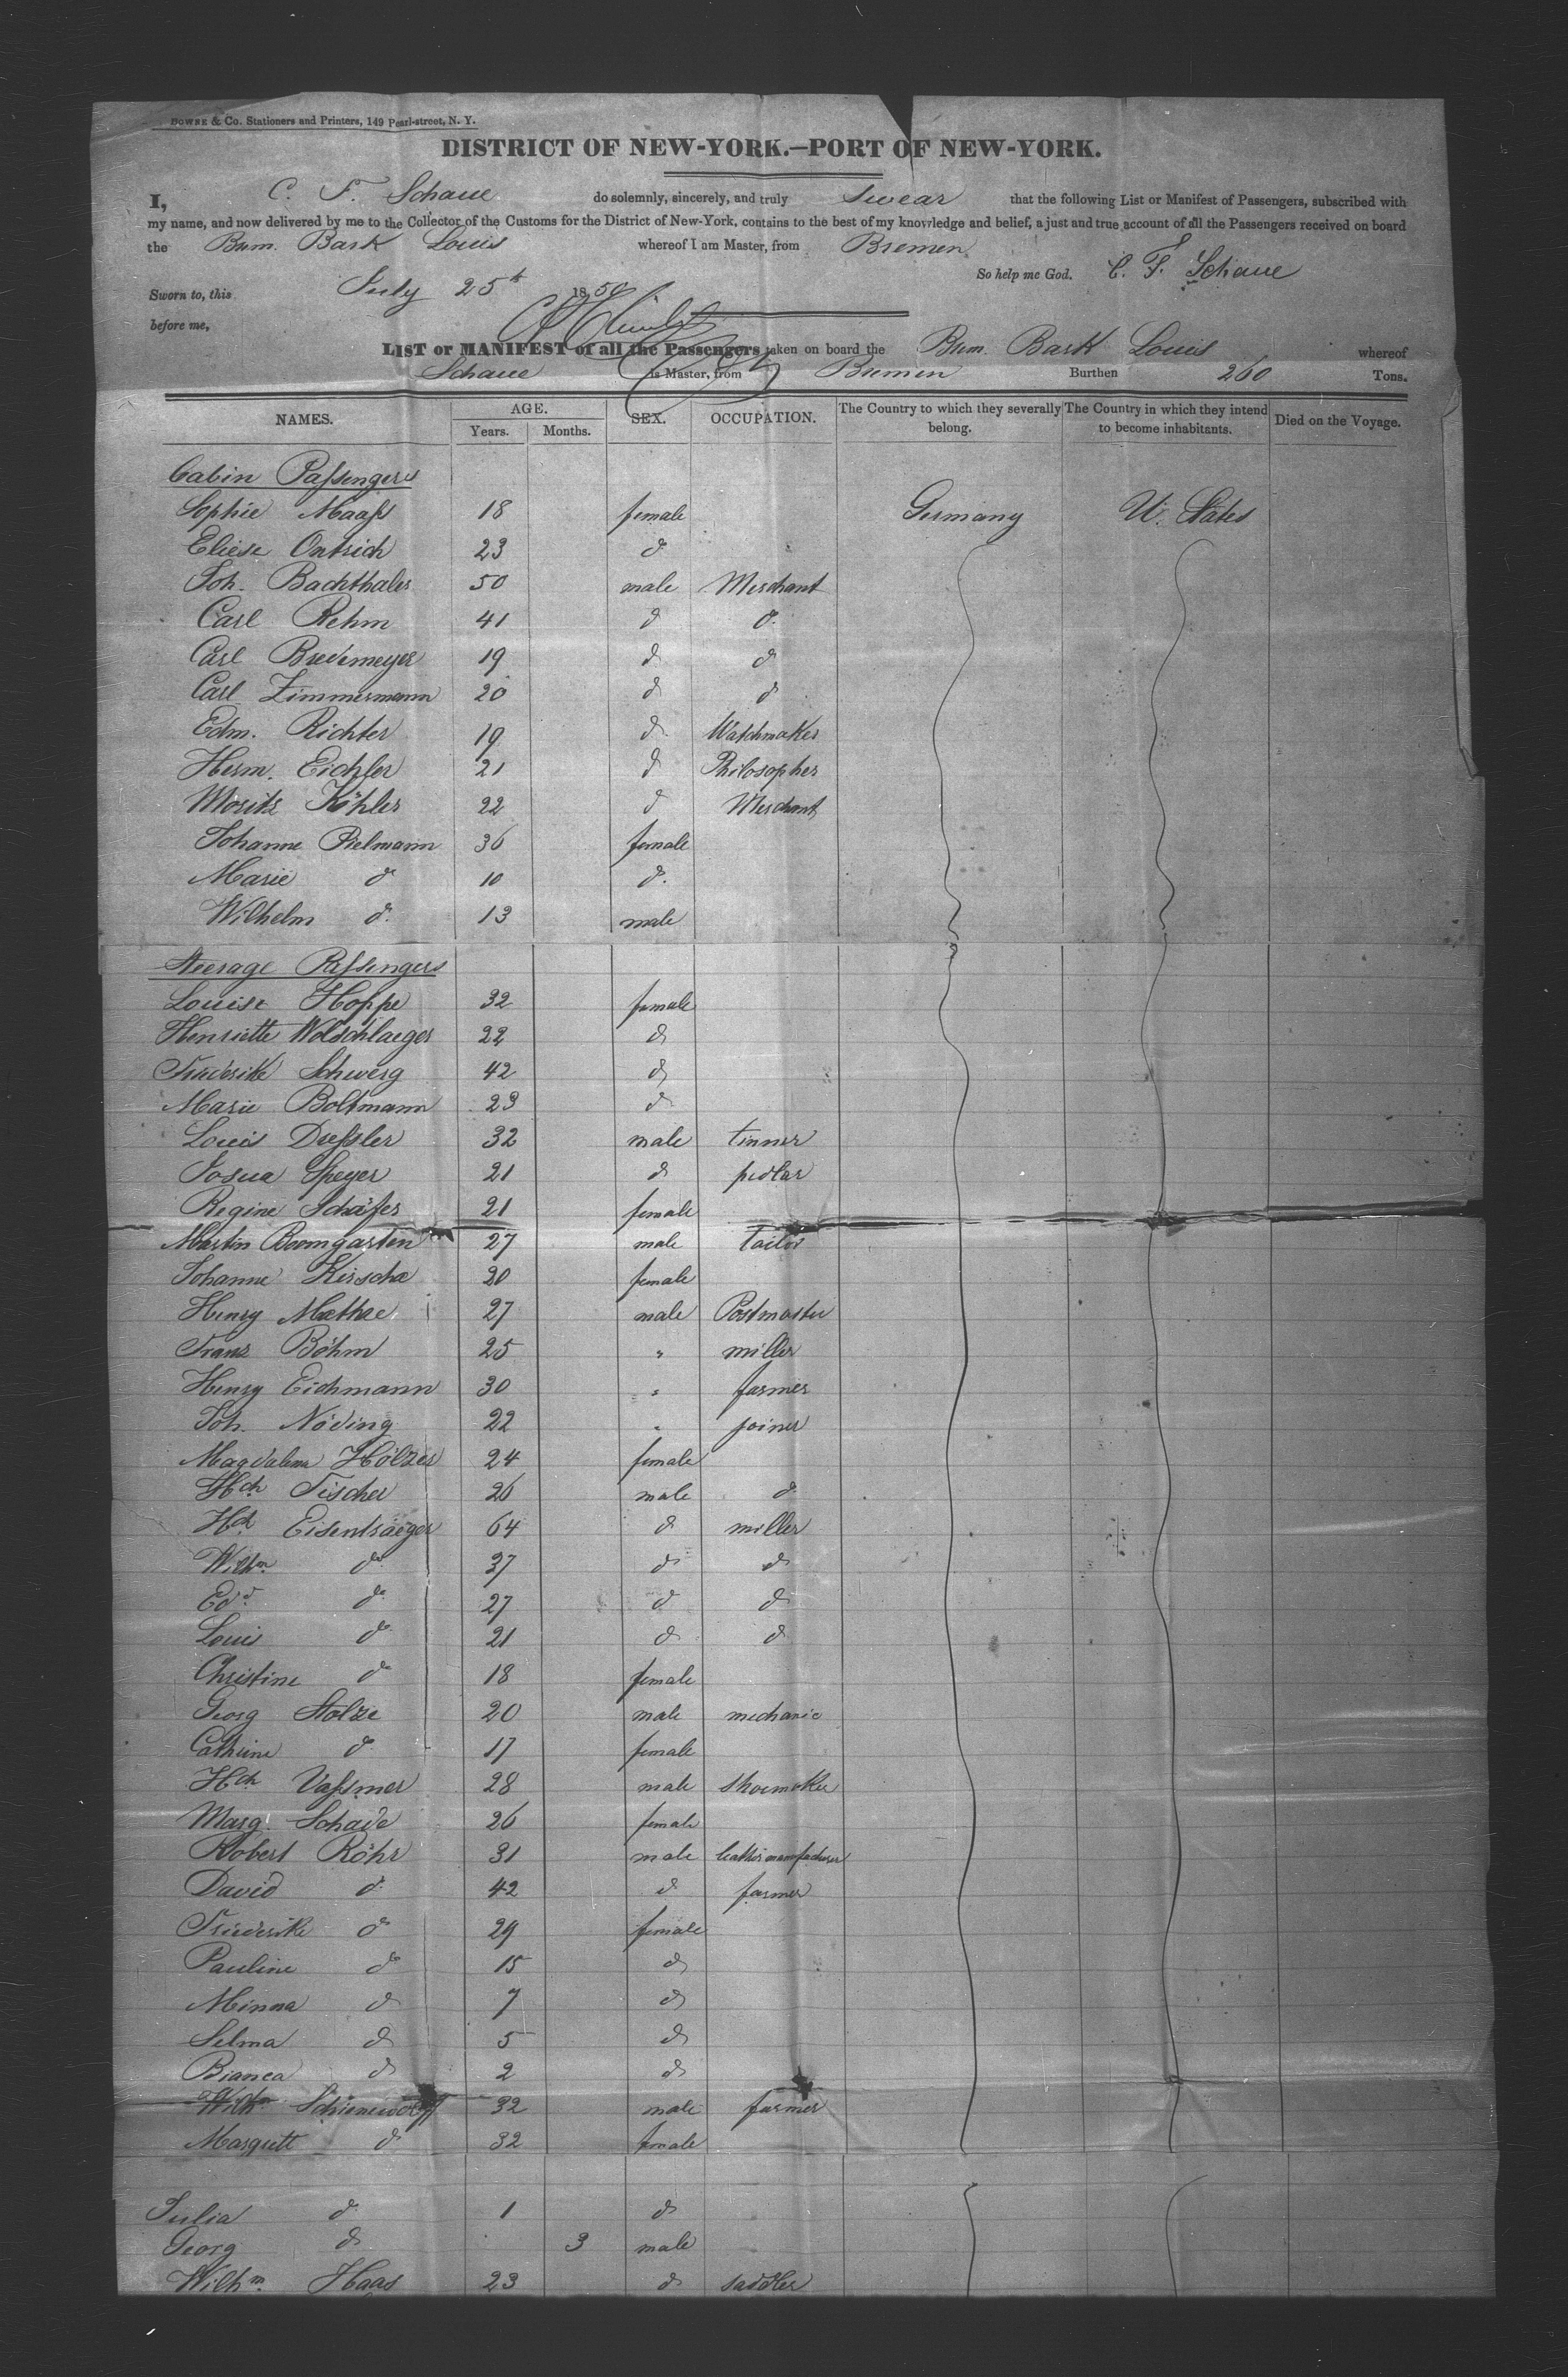 BOWNE & Co. Stationers and Printers, 149 Pearl-street, N. Y.
DISTRICT OF NEW-YORK.—PORT OF NEW-YORK.
I, C. F. Schaue do solemnly, sincerely, and truly swear that the following List or Manifest of Passengers, subscribed with
my name, and now delivered by me to the Collector of the Customs for the District of New-York, contains to the best of my knowledge and belief, a just and true account of all the Passengers received on board
the Brem. Bark Louis whereof I am Master, from Bremen.
So help me God. C. F. Schaue
Sworn to, this July 25th 1850
before me,
LIST or MANIFEST of all the Passengers taken on board the Brem. Bark Louis whereof
Schaue is Master, from Bremen Burthen 260 Tons.
NAMES. AGE. SEX. OCCUPATION. The Country to which they severally belong. The Country in which they intend to become inhabitants. Died on the Voyage.
Years. Months.
Cabin Passengers
Sophie Maass 18 female Germany U. States
Eliese Ontrich 23 do
Joh. Bachthaler 50 male Merchant
Carl Rehm 41 do do
Carl Bredemeyer 19 do do
Carl Zimmermann 20 do do
Edm. Richter 19 do Watchmaker
Herm. Eichler 21 do Philosopher
Moritz Köhler 22 do Merchant
Johanne Pielmann 36 female
Marie do 10 do
Wilhelm do 13 male
Steerage Passengers
Louise Hoppe 32 female
Henriette Wolschlaeger 22 do
Friederike Schwerg 42 do
Marie Boltmann 23 do
Louis Dressler 32 male tinner
Josua Speyer 21 do pedlar
Regine Schäfer 21 female
Martin Boomgarten 27 male tailor
Johanne Kirscha 20 female
Henry Mathae 27 male Postmaster
Franz Böhm 25 " miller
Henry Eichmann 30 " farmer
Joh. Nöding 22 " joiner
Magdalena Hölzer 24 female
Hch Fischer 26 male do
Hch Eisentraeger 64 do miller
Wilhm do 37 do do
Edd do 27 do do
Louis do 21 do do
Christine do 18 female
Georg Stolze 20 male mechanic
Cathrine do 17 female
Hch Vassmer 28 male shoemaker
Marg. Schade 26 female
Robert Röhr 31 male leather manufacturer
David do 42 do farmer
Friederike do 29 female
Pauline do 15 do
Minna do 7 do
Selma do 5 do
Bianca do 2 do
Wilhm 32 male farmer
Margrett do 32 female
Julia do 1 do
Georg do 3 male
Wilhm Haas 23 do saddler